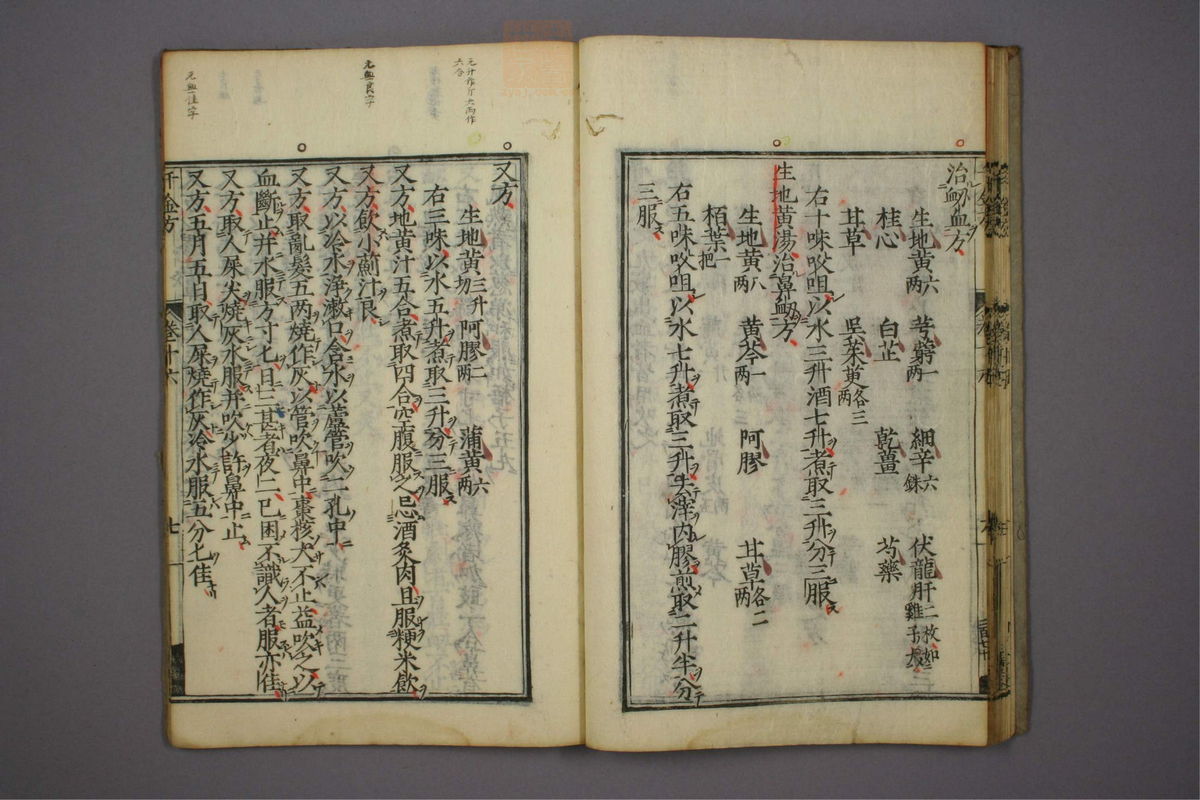 治衂血方
生地黄六两 芎藭一两 細辛六銖 伏龍肝二枚如雞子大
桂心 白芷 乾薑 芍藥
甘草 呉茱萸各三两
右十味㕮咀以水三升酒七升煮取三升分三服
生地黄湯治鼻衂方
生地黄八两 黄芩一两 阿膠 甘草各二两
栢葉一把
右五味㕮咀以水七升煮取三升去滓内膠煎取二升半分
三服
又方
生地黄三升切 阿膠二两 蒲黄六两
右三味以水五升煮取三升分三服
又方地黄汁五合煮取四合空腹服之忌酒炙肉且服粳米飲
又方飲小薊汁良
又方以冷水浄漱口含水以蘆管吹二孔中
又方取亂髮五两燒作灰以管吹鼻中棗核大不止益吹之以
血斷止并水服方寸匕日三甚者夜二已困不識人者服亦佳
又方取人屎尖燒灰水服并吹少許鼻中止
又方五月五日取人屎燒作灰冷水服五分匕佳
千金方 卷十六 七
元升作斤 大两作
六合
元無良字
元無佳字